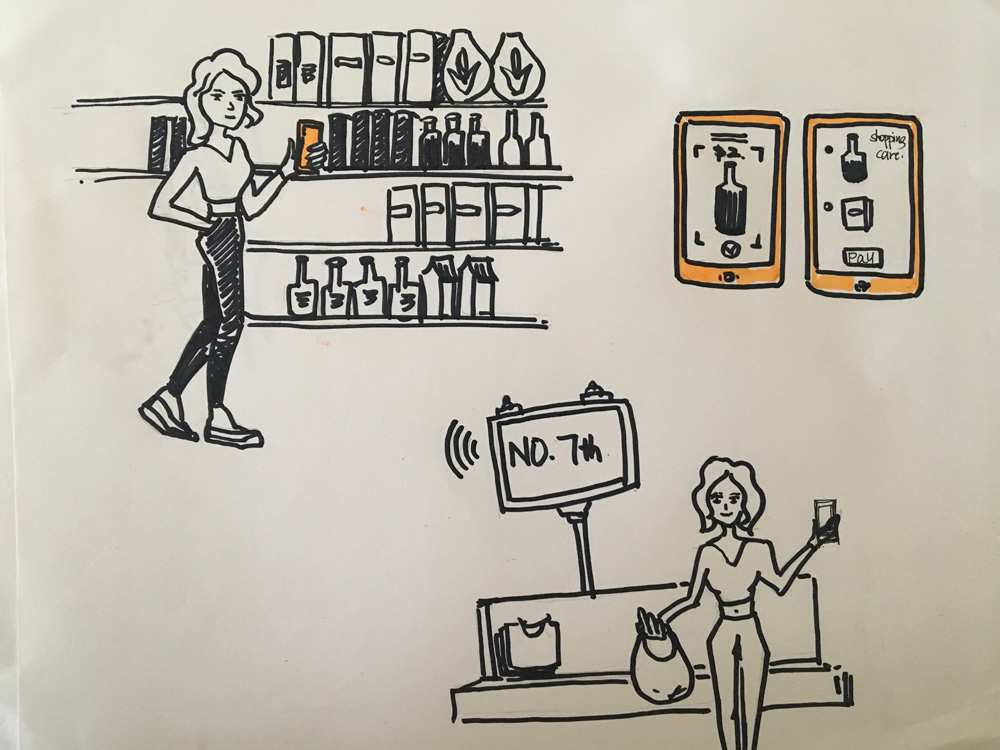 $2.
shopping
care.
Pay
NO. 7th